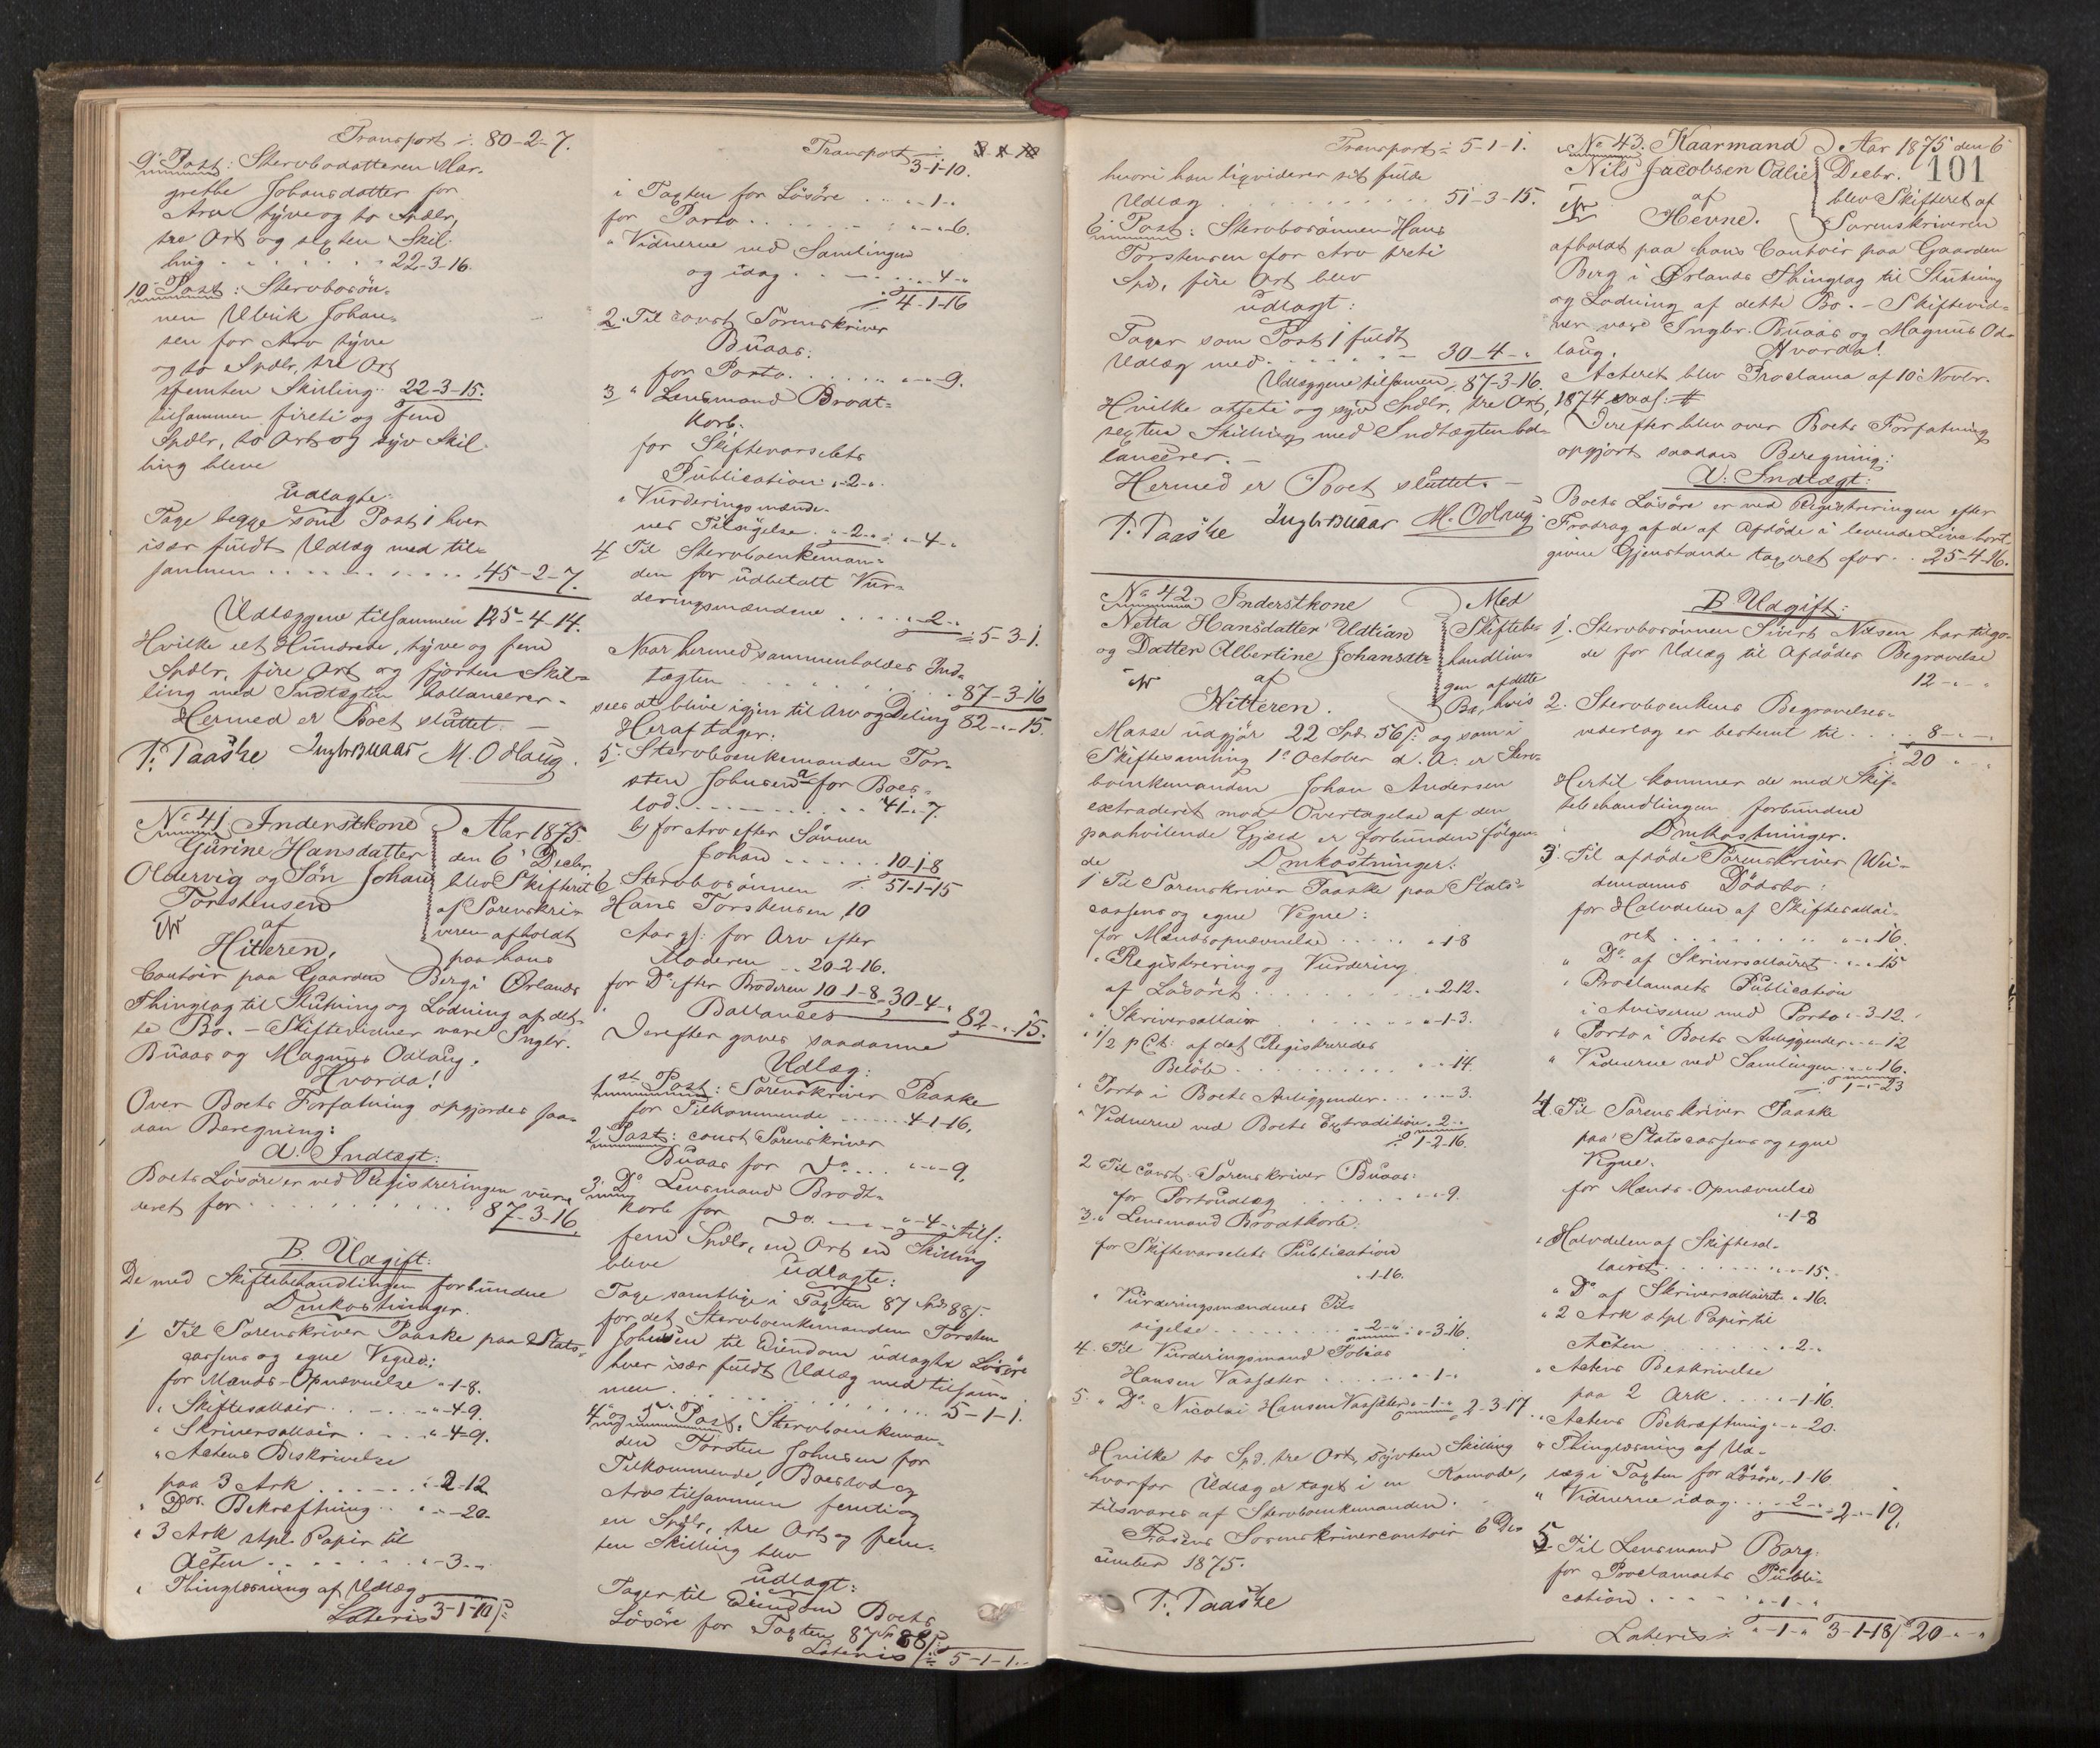 Transport ⁒ 80-2-7.
9. Post: Stervbodatteren Mar-
grethe Johansdatter for
Arv tyve og to Spdlr,
tre Ort og sexten Skil-
ling 22-3-16.
10 Post: Stervbosön-
nen Ulrik Johan-
sen for Arv tyve
og to Spdlr, tre Ort
femten Skilling 22-3-15.
tilsammen fireti og fem
Spdlr, to Ort og syv Skil-
ling bleve
udlagte:
Tage begge som Post 1 hver
især fuldt Udlæg med til-
sammen 45-2-7.
Udlæggene tilsammen 125-4-14.
Hvilke eet Hundrede, tyve og fem
Spdlr, fire Ort og fjorten Skil-
ling med Indtægten ballancerer.
Hermed er Boet sluttet. —
P. Paaske Ingbr Buaas M. Odlaug.
No 41. Inderstkone
Gurine Hansdatter
Oldervig og Sön Johan
Torstensen
af
Hitteren,
Aar 1875
den 6 Decbr.
blev Skifteret
af Sorenskri-
veren afholdt
paa hans
Contoir paa Gaarden Berg i Ørlands
Thinglag til Slutning og Lodning af det-
te Bo. — Skiftevidner vare Ingbr.
Buaas og Magnus Odlaug.
Hvorda!
Over Boets Forfatning opgjordes saa-
dan Beregning:
A. Indtægt:
Boets Lösöre er ved Registreringen vurde-
deret for 87-3-16.
B. Udgift:
De med Skiftebehandlingen forbundne
Omkostninger.
1 Til Sorenskriver Paaske paa Stats-
cassens og egne Vegne:
for Mænds-Opnævnelse "-1-8.
" Skiftesallair "-4-9.
" Skriversallair "-4-9.
" Actens Beskrivelse
paa 3 Ark "-2-12
" Dos Bekræftning "-"-20.
" 3 Ark stpl. Papir til
Acten "-3-"
" Thinglæsning af Udlæg
Lateris 3-1-10
Transport ⁒
3-1-10.
i Tagten for Lösöre "-1-"
for Porto "-"-6.
" Vidnerne ved Samlingen
og idag "-4-"
⁒ 4-1-16
2. Til const. Sorenskriver
Buaas:
for Porto "-"-9.
3 " Lensmand Brodt-
korb:
for Skiftevarselets
Publication "-2-"
" Vurderingsmænde-
nes Tilsigelse "-2-" ⁒ "-4-"
4 Til Stervboenkeman-
den for udbetalt Vur-
deringsmændene "-2-" ⁒ 5-3-1.
Naar hermed sammenholdes Ind-
tægten 87-3-16
sees at blive igjen til Arv og Deling 82-"-15.
Heraf tager:
5. Stervboenkemanden Tor-
sten Johnsen a for Boes-
lod 41-"-7.
b, for Arv efter Sönnen
Johan 10-1-8
⁒ 51-1-15
6 Stervbosönnen
Hans Torstensen, 10
Aar gl: for Arv efter
Moderen 20-2-16.
for Do efter Broderen 10-1-8, 30-4-"
Ballances 82-"-15.
Derefter gaves saadanne
Udlæg:
1ste Post: Sorenskriver Paaske
for Tilkommende 4-1-16.
2 Post: const Sorenskriver
Buaas for Do "-"-9.
3. Do Lensmand Brodt-
korb for Do "-4-" tils:
fem Spdlr, en Ort en Skilling
bleve
udlagte:
Tage samtlige i Tagten 87 Spd 88
for det Stervboenkemanden Torsten
Johnsen til Eiendom udlagte Lösöre
hver især fuldt Udlæg med tilsam-
men 5-1-1.
4 og 5 Post: Stervboenkeman-
den Torsten Johnsen for
Tilkommende Boeslod og
Arv tilsammen femti og
en Spdlr, tre Ort og fem-
ten Skilling blev
udlagt:
Tager til Eiendom Boets
Lösöre for Tagten 87 Sp 88
Lateris ⁒ 5-1-1.
Transport ⁒ 5-1-1.
hvori han liqviderer sit fulde
Udlæg 51-3-15.
6. Post: Stervbosönnen Hans
Torstensen for Arv treti
Spd, fire Ort blev
udlagt:
Tager som Post 1 fuldt
Udlæg med 30-4-"
Udlæggene tilsamen 87-3-16.
Hvilke otteti og syv Spdlr, tre Ort,
sexten Skilling med Indtægten bal-
lancerer. —
Hermed er Boet sluttet. —
P. Paaske Ingbr Buaas M. Odlaug
No 42 Inderstkone
Netta Hansdatter Udtian
og Datter Albertine Johansdtr
af
Hitteren.
Med
Skiftebe-
handlin-
gen af dette
Bo, hvis
Masse udgjör 22 Spd 56 og som i
Skiftesamling 1ste October d. A. er Sterv-
boenkemanden Johan Andersen
extraderet mod Overtagelse af den
paahvilende Gjæld er forbunden fölgen-
de
Omkostninger:
1 Til Sorenskriver Paaske paa Stats-
cassens og egne Vegne:
for Mændsopnævnelse "-1-8
" Registrering og Vurdering
af Lösöret "-2-12.
" Skriversallair "-1-3.
" 1/2 pCt: af det Registreredes
Belöb "-"-14.
" Porto i Boets Anliggender "-"-3.
" Vidnerne ved Boets Extradition "-2-"
⁒ 1-2-16.
2 Til const. Sorenskriver Buaas:
for Portoudlæg "-"-9.
3. " Lensmand Brodtkorb:
for Skiftevarselets Publication
"-1-16.
" Vurderingsmændenes Til-
sigelse "-2-" ⁒ "-3-16.
4. Til Vurderingsmand Tobias
Hansen Vassæter "-1-"
5. " Do Nicolai Hansen Vassæter "-1-" 2-3-17.
Hvilke to Spd. tre Ort, sytten Skilling
hvorfor Udlæg er taget i en Komode,
tilsvares af Stervboenkemanden.
Fosens Sorenskrivercontoir 6 De-
cember 1875.
P. Paaske
101
No 43. Kaarmand
Nils Jacobsen Odlie
af
Hevne.
Aar 1875 den 6
Decbr.
blev Skifteret af
Sorenskriveren
afholdt paa hans Contoir paa Gaarden
Berg i Ørlands Thinglag til Slutning
og Lodning af dette Bo. — Skiftevid-
ner vare Ingbr. Buaas og Magnus Od-
laug.
Hvorda!
Acteret blev Proclama af 10 Novbr.
1874
Derefter blev over Boets Forfatning
opgjort saadan Beregning:
A. Indtægt:
Boets Lösöre er ved Registreringen efter
Fradrag af de af Afdöde i levende Live bort-
givne Gjenstande taxeret for 25-4-16.
B Udgift:
1. Stervbosönnen Sivert Nilsen har tilgo-
de for Udlæg til Afdödes Begravelse
12-"-"
2. Stervboenkens Begravelses-
vederlag er bestemt til 8-"-"
⁒ 20-"-"
Hertil kommer de med Skif-
tebehandlingen forbundne
Omkostninger.
3 Til afdöde Sorenskriver Wei-
demanns Dödsbo:
for Halvdelen af Skiftesallai-
ret "-"-16.
" Do af Skriversallairet "-"-15
" Proclamaets Publication
i Aviserne med Porto "-3-12.
" Porto i Boets Anliggender "-"-12
" Vidnerne ved Samlingen "-"-16.
⁒ 1-"-23
4 Til Sorenskriver Paaske
paa Statscassens og egne
Vegne:
for Mænds-Opnævnelse
"-1-8
" Halvdelen af Skiftesal-
lairet "-"-15.
" Do af Skriversallairet "-"-16.
" 2 Ark stpl Papir til
Acten "-2-"
" Actens Beskrivelse
paa 2 Ark "-1-16.
" Actens Bekræftning "-"-20.
" Thinglæsning af Ud-
læg i Tagten for Lösöre "-1-16
" Vidnerne idag "-2-" ⁒ 2-"-19.
5 Til Lensmand Borg:
for Proclamaets Publi-
cation "-1-"
Lateris ⁒ "-1-" 3-1-18 20-"-"